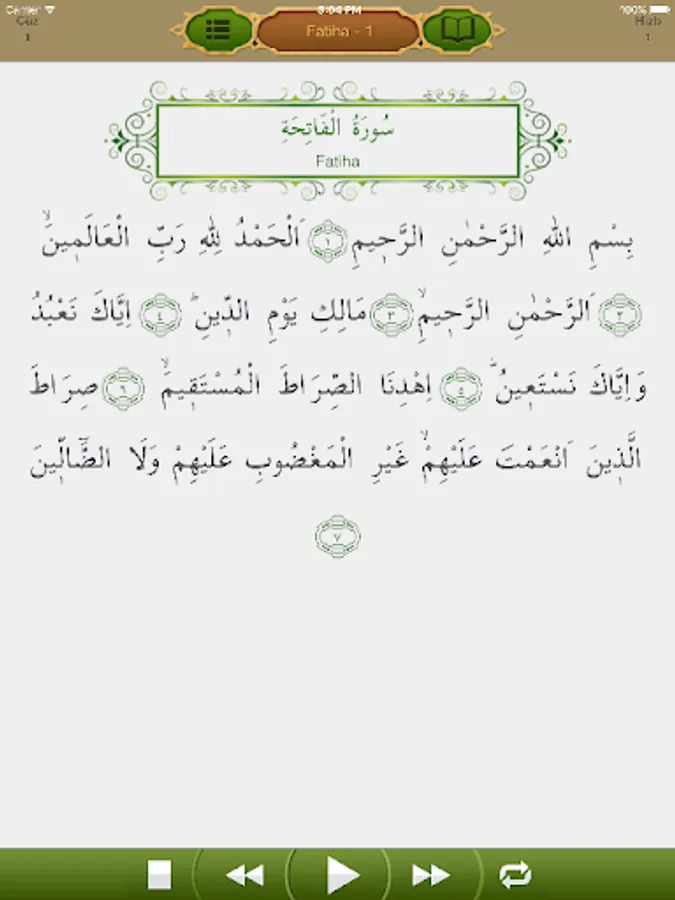 Carrier 5:04 PM 100%
Cüz Fatiha - 1 Hizb
1 1
سُورَةُ الْفَاتِحَةِ
Fatiha
بِسْمِ اللهِ الرَّحْمٰنِ الرَّحٖيمِ ١ اَلْحَمْدُ لِلّٰهِ رَبِّ الْعَالَمٖينَۙ
٢ اَلرَّحْمٰنِ الرَّحٖيمِۙ ٣ مَالِكِ يَوْمِ الدّٖينِؕ ٤ اِيَّاكَ نَعْبُدُ
وَاِيَّاكَ نَسْتَعٖينُؕ ٤ اِهْدِنَا الصِّرَاطَ الْمُسْتَقٖيمَۙ ٦ صِرَاطَ
الَّذٖينَ اَنْعَمْتَ عَلَيْهِمْۙ غَيْرِ الْمَغْضُوبِ عَلَيْهِمْ وَلَا الضَّٓالّٖينَ
٧